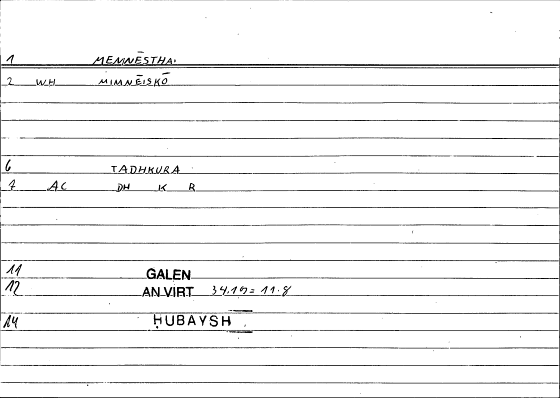 1 MEMNĒSTHAI
2 WH MIMNĒISKŌ
6 TADHKURA
7 AC DH K R
11 GALEN
12 AN VIRT 34.19 = 11.8
14 ḤUBAYSH